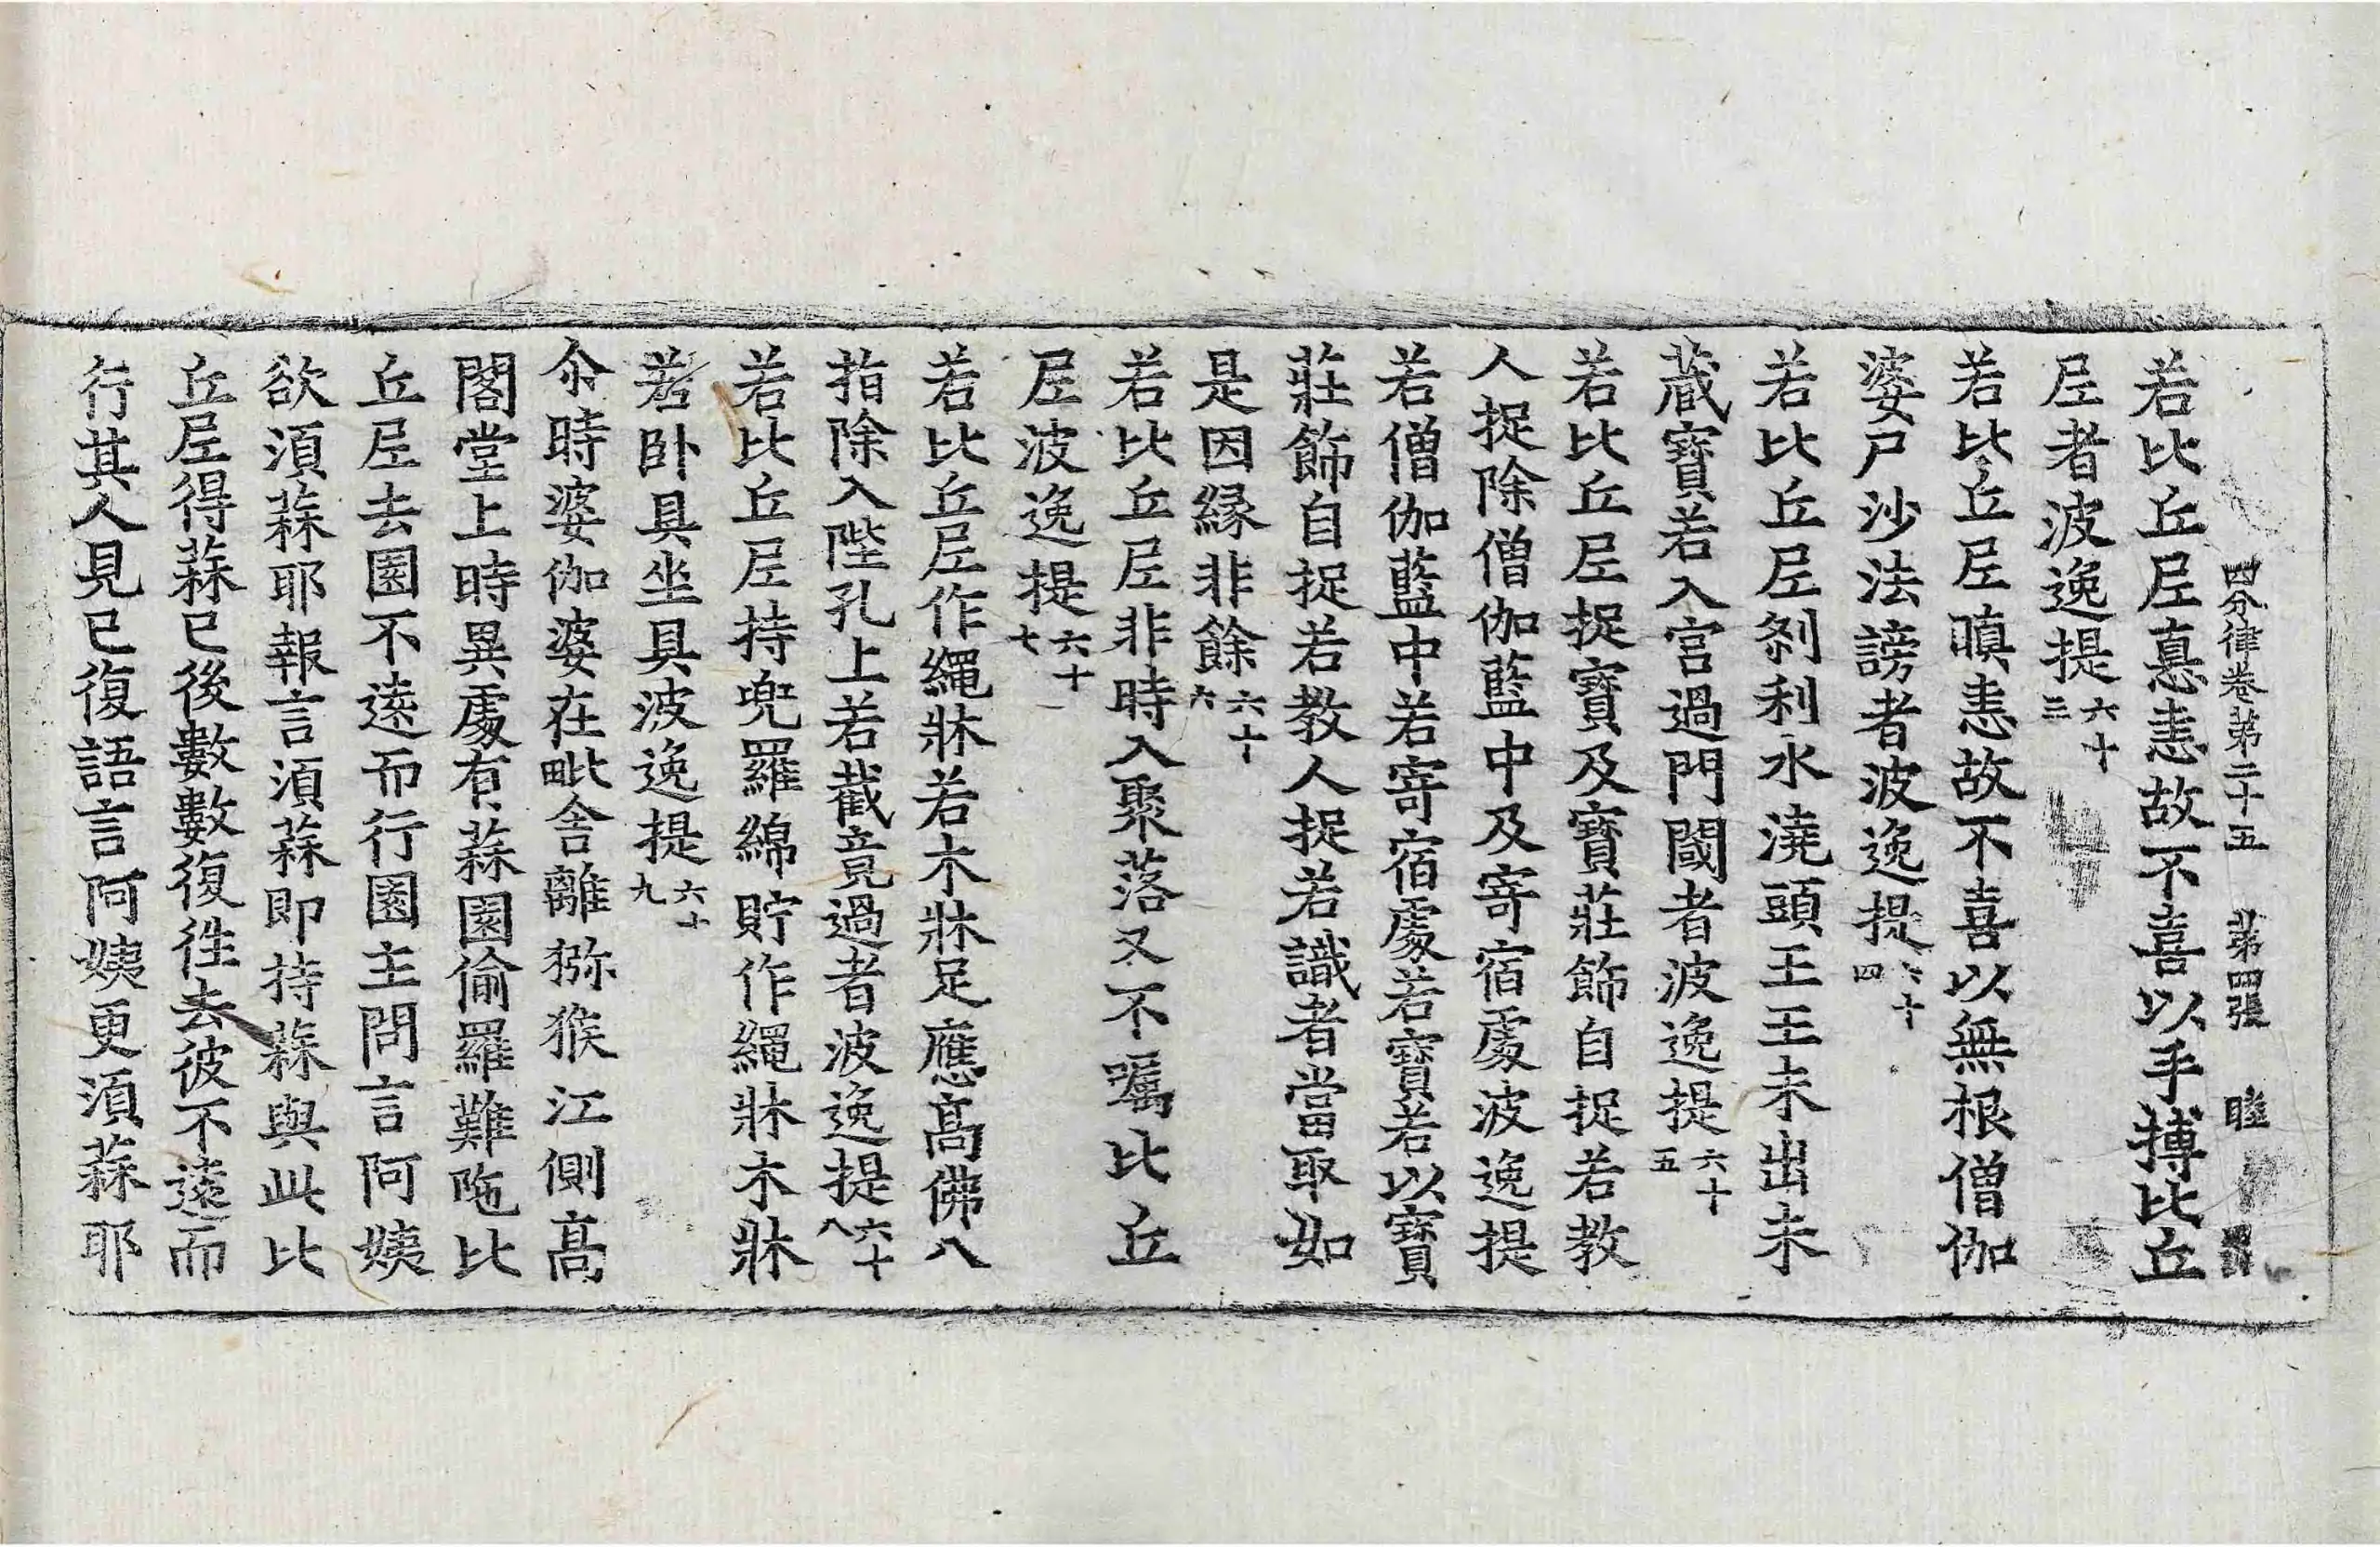 四分律卷第二十五 第四張 睦
若比丘𡰱憙恚故不喜以手摶比丘
𡰱者波逸提六十三
若比丘𡰱瞋恚故不喜以無根僧伽
婆尸沙法謗者波逸提六十四
若比丘𡰱刹利水澆頭王王未出未
蔵寶若入宫過門閾者波逸提六十五
若比丘𡰱捉寶及寶莊飾自捉若教
人捉除僧伽藍中及寄宿處波逸提
若僧伽藍中若寄宿處若寶若以寶
莊飾自捉若教人捉若識者當取如
是因緣非餘六十六
若比丘𡰱非時入聚落又不囑比丘
𡰱波逸提六十七
若比丘𡰱作繩牀若木牀足應高佛八
指除入陛孔上若截竟過者波逸提六十八
若比丘𡰱持兜羅綿貯作繩牀木牀
若卧具坐具波逸提六十九
尒時婆伽婆在毗舍離獼猴江側高
閣堂上時異處有蒜園偷羅難陁比
丘𡰱去園不遠而行園主問言阿姨
欲湏蒜耶報言湏蒜即持蒜與此比
丘𡰱得蒜已後數數復徃去彼不遠而
行其人見已復語言阿姨更湏蒜耶